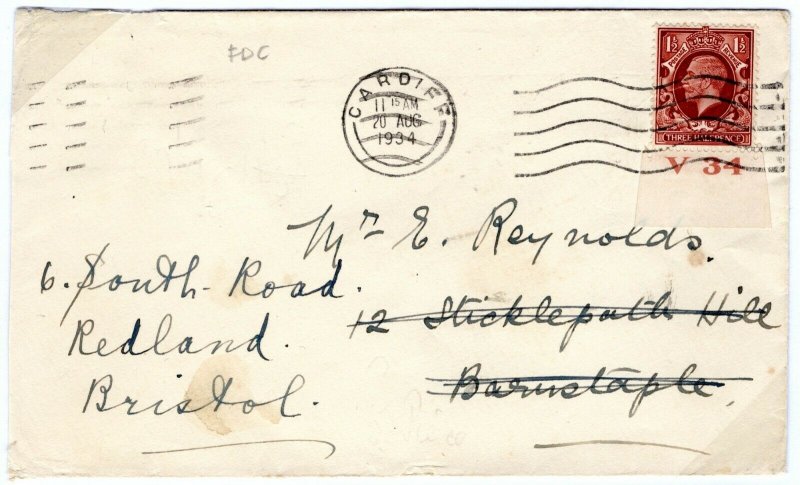 FDC
CARDIFF
11 15 AM
20 AUG
1934
1½ 1½
THREE HALFPENCE
V 34
Mr E. Reynolds.
12 Sticklepath Hill
Barnstaple.
6. South Road.
Redland.
Bristol.